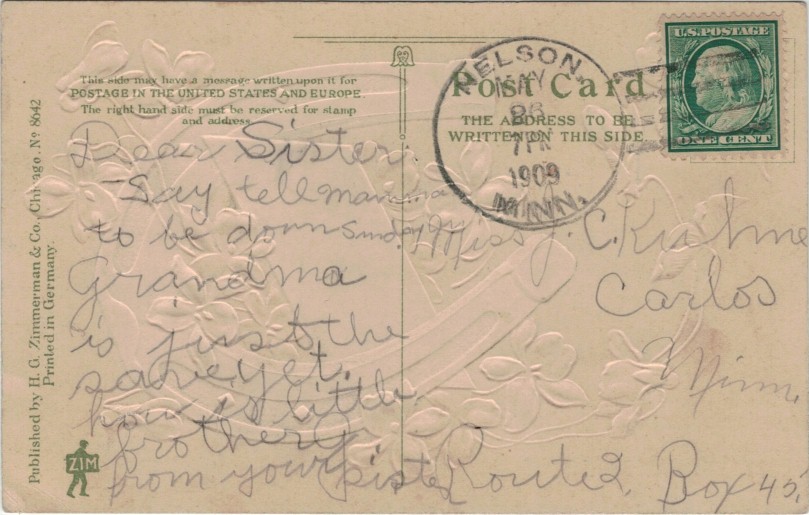 This side may have a message written upon it for
POSTAGE IN THE UNITED STATES AND EUROPE.
The right hand side must be reserved for stamp
and address.
Dear Sister
Say tell mamma
to be down Sunday
Grandma
is just the
same yet.
how is little
brother
from your sister
Published by H. G. Zimmerman & Co., Chicago. No 8642
Printed in Germany.
ZIM
Post Card
THE ADDRESS TO BE
WRITTEN ON THIS SIDE.
NELSON,
MAY
26
1909
MINN.
U.S. POSTAGE
ONE CENT
Miss J. C.
Carlos
Minn.
Route 2, Box 45,